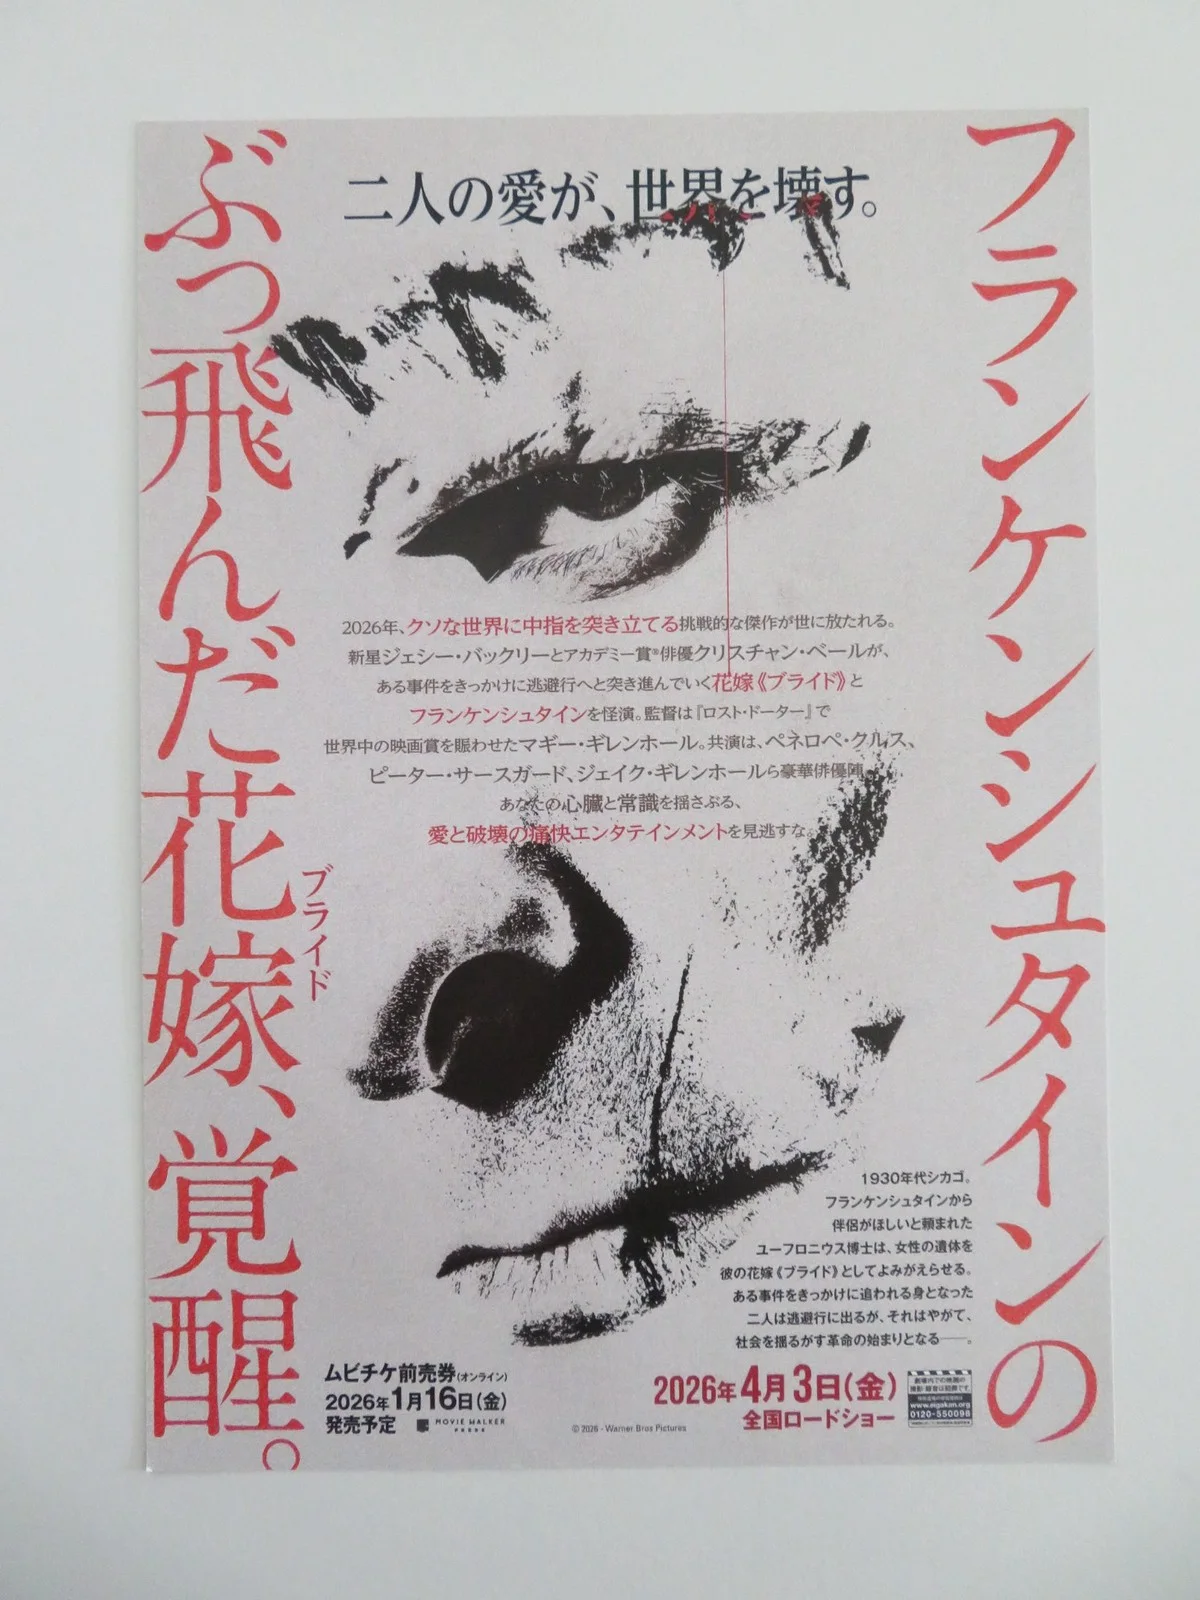 フランケンシュタインの
ぶっ飛んだ花嫁、覚醒。
ブライド
二人の愛が、世界を壊す。
2026年、クソな世界に中指を突き立てる挑戦的な傑作が世に放たれる。
新星ジェシー・バックリーとアカデミー賞®俳優クリスチャン・ベールが、
ある事件をきっかけに逃避行へと突き進んでいく花嫁《ブライド》と
フランケンシュタインを怪演。監督は『ロスト・ドーター』で
世界中の映画賞を賑わせたマギー・ギレンホール。共演は、ペネロペ・クルス、
ピーター・サースガード、ジェイク・ギレンホールら豪華俳優陣。
あなたの心臓と常識を揺さぶる、
愛と破壊の痛快エンタテインメントを見逃すな。
1930年代シカゴ。
フランケンシュタインから
伴侶がほしいと頼まれた
ユーフロニウス博士は、女性の遺体を
彼の花嫁《ブライド》としてよみがえらせる。
ある事件をきっかけに追われる身となった
二人は逃避行に出るが、それはやがて、
社会を揺るがす革命の始まりとなる──。
ムビチケ前売券(オンライン)
2026年1月16日(金)
発売予定
MOVIE WALKER
PRESS
© 2026 - Warner Bros Pictures
2026年4月3日(金)
全国ロードショー
劇場内での映画の
撮影・録音は犯罪です
www.eigakan.org
0120-550098